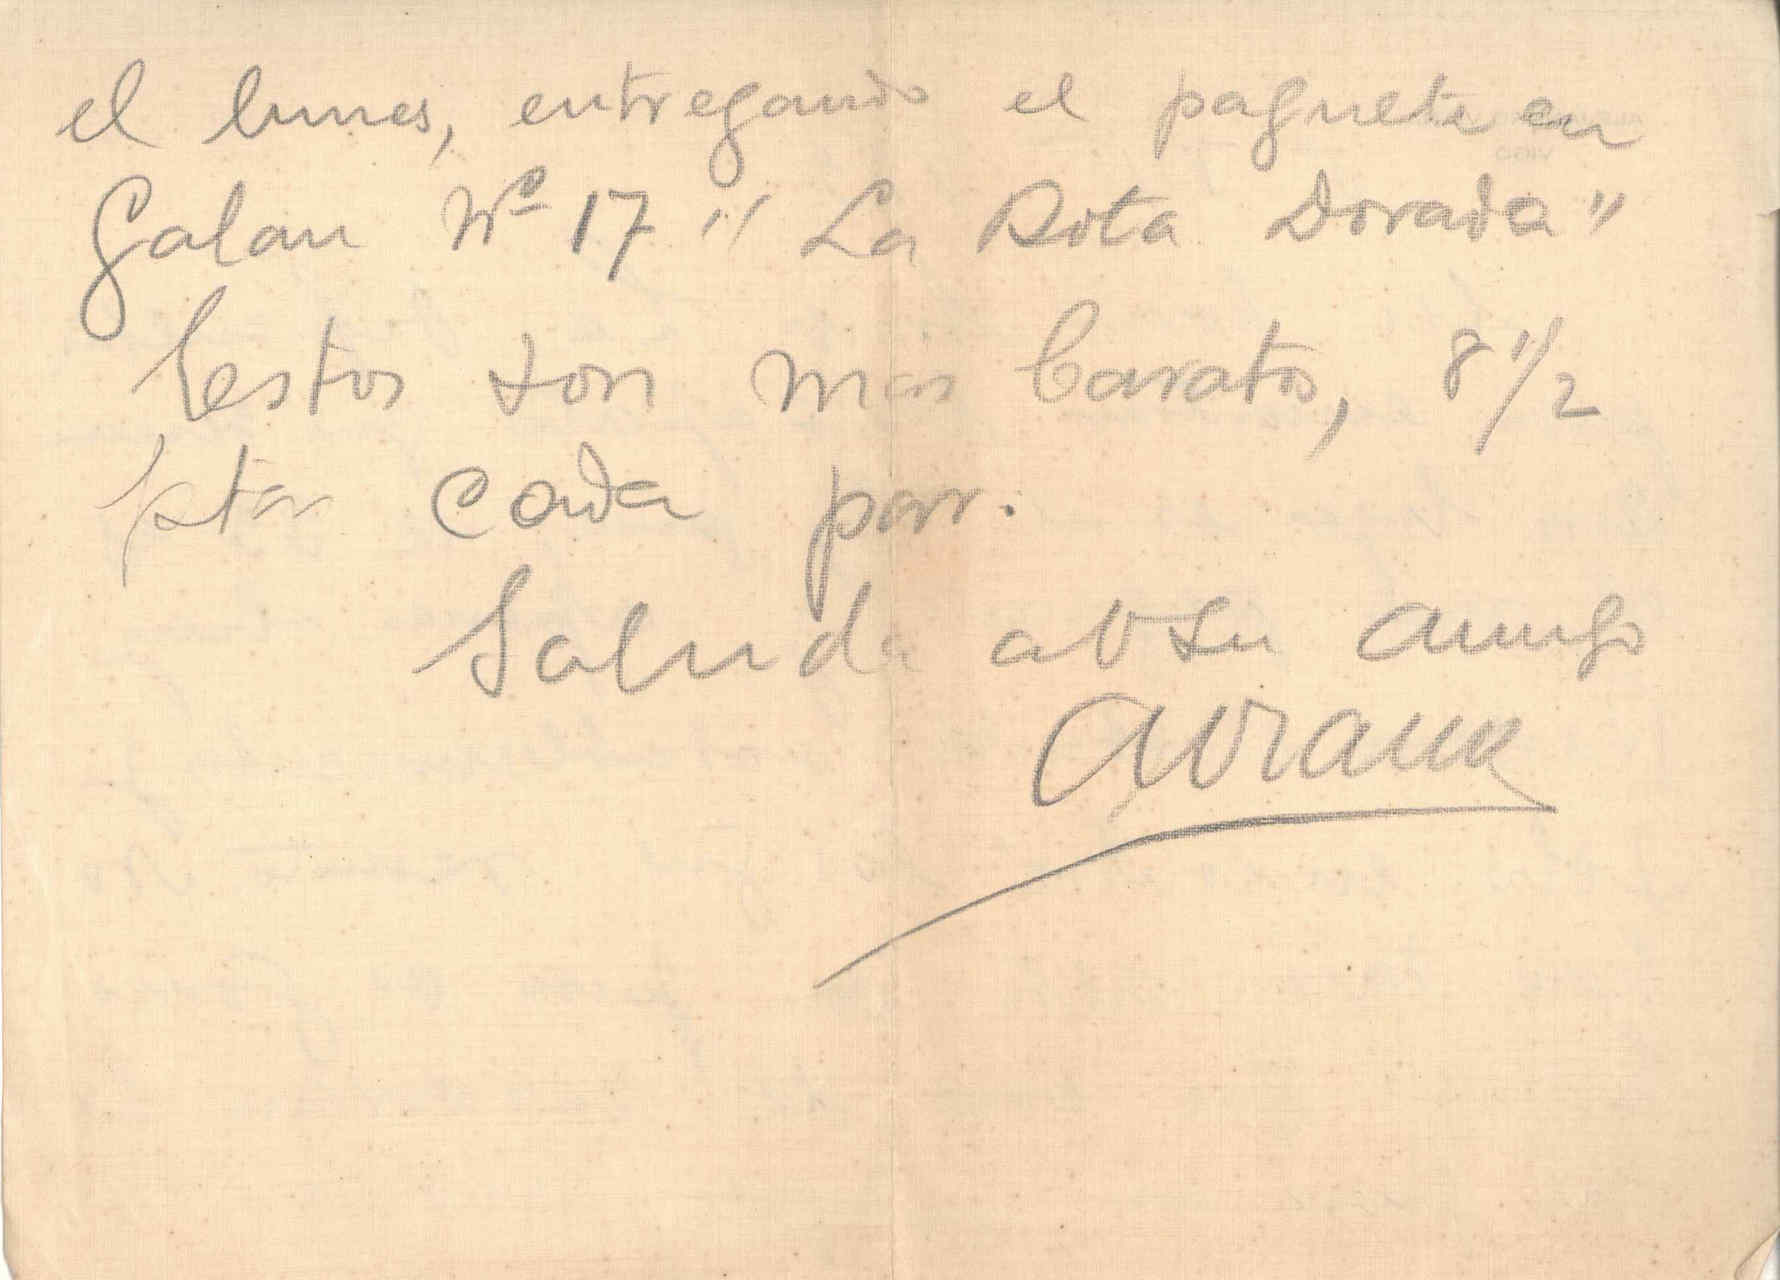 el lunes, entregando el paquete en
Galan Nº 17 " La Bota Dorada"
Estos son mas baratos, 8 1/2
ptas cada par.
Saluda a V su amigo